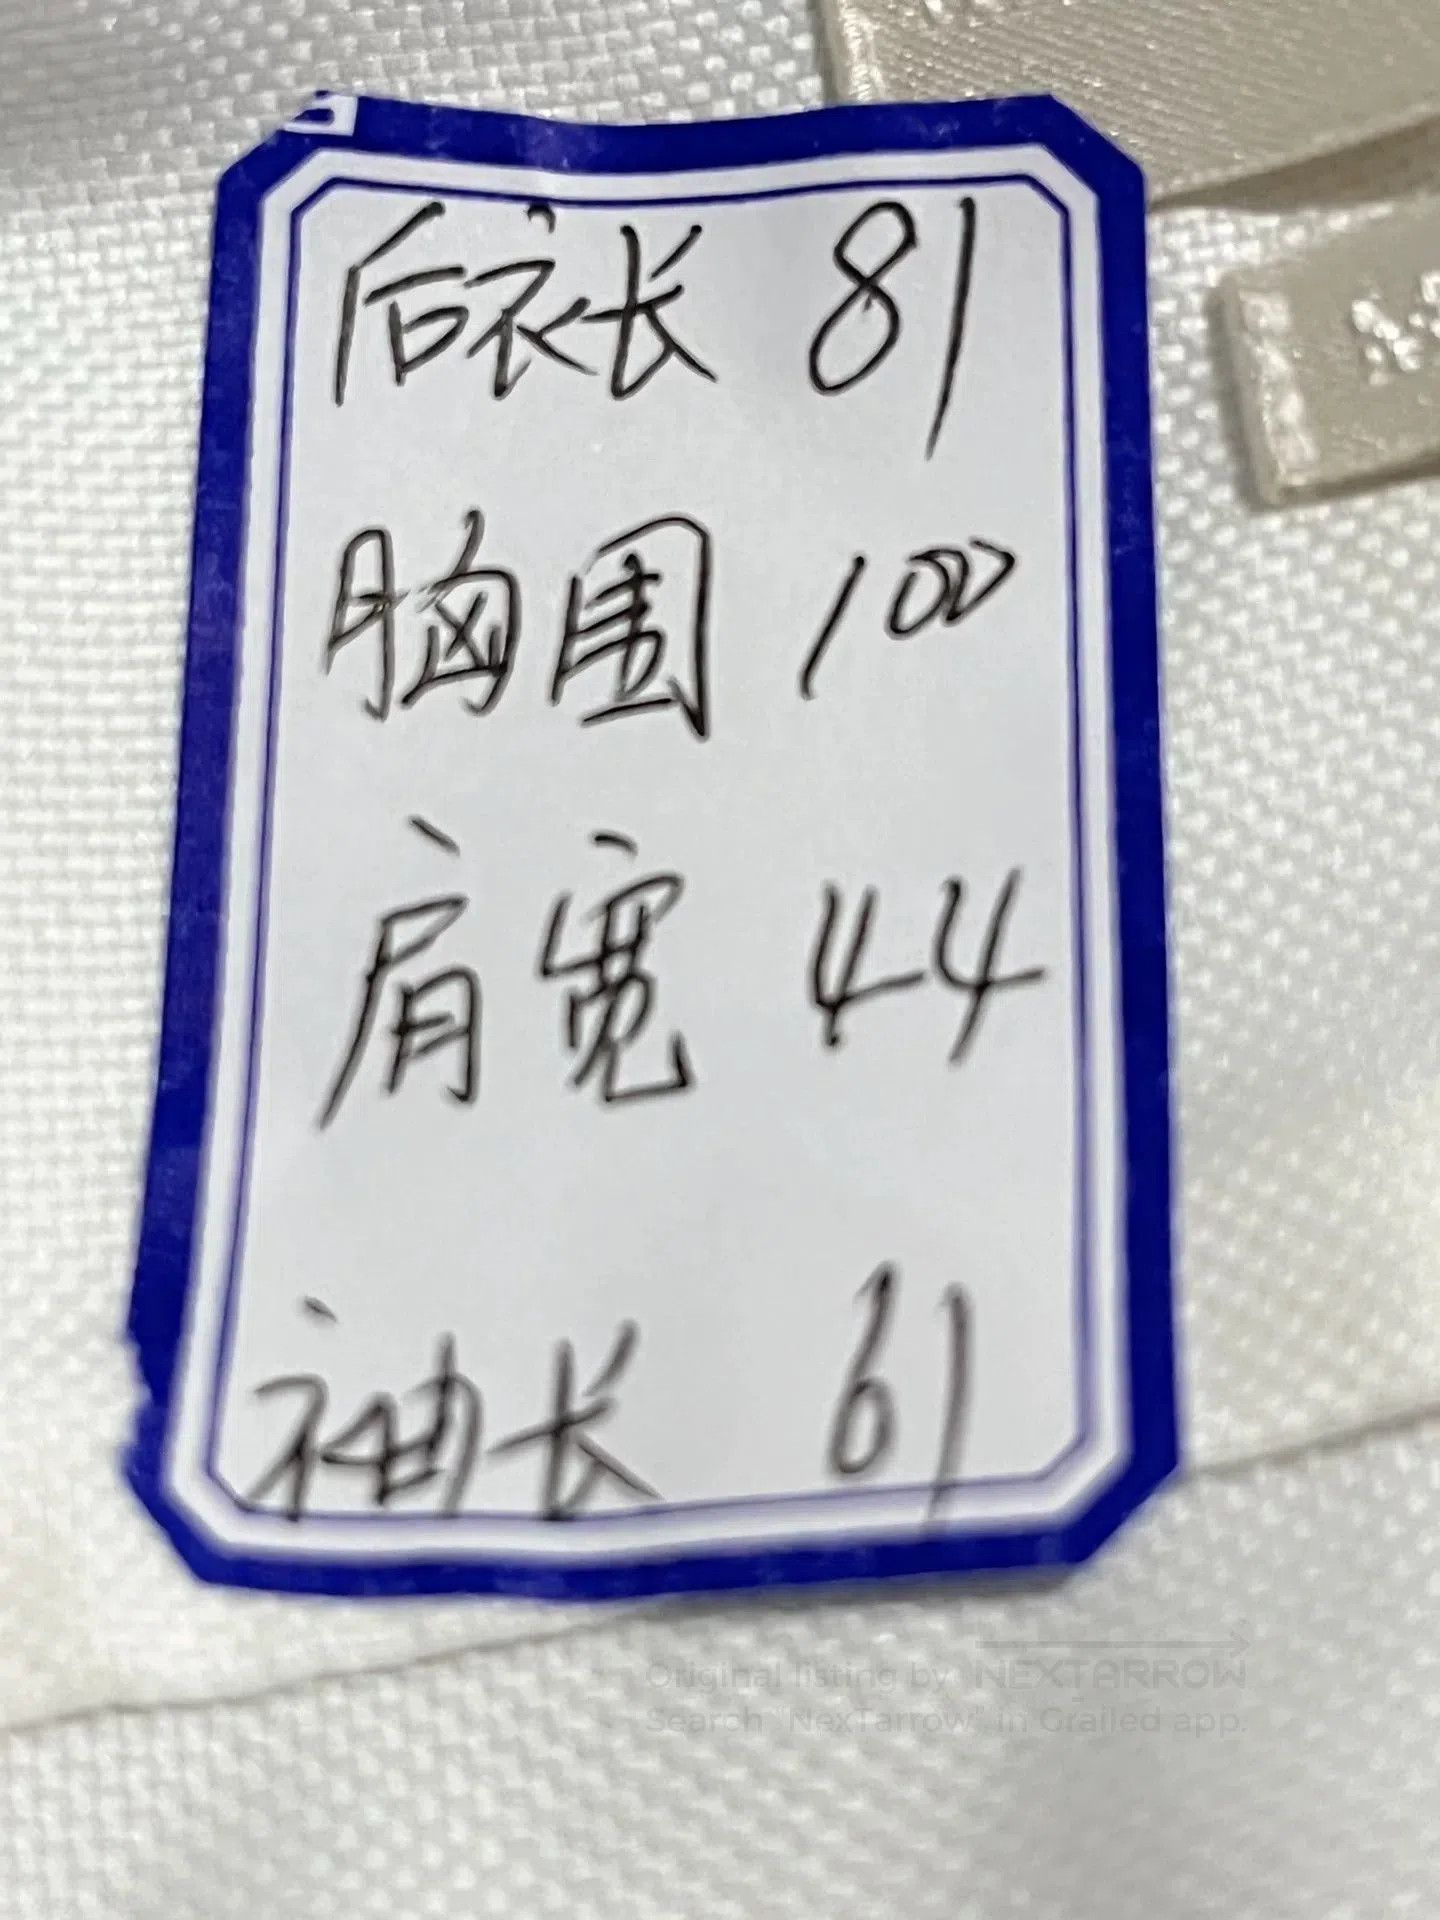 后衣长 81
胸围 100
肩宽 44
袖长 61
Original listing by NEXTARROW
Search "NexTarrow" in Grailed app.